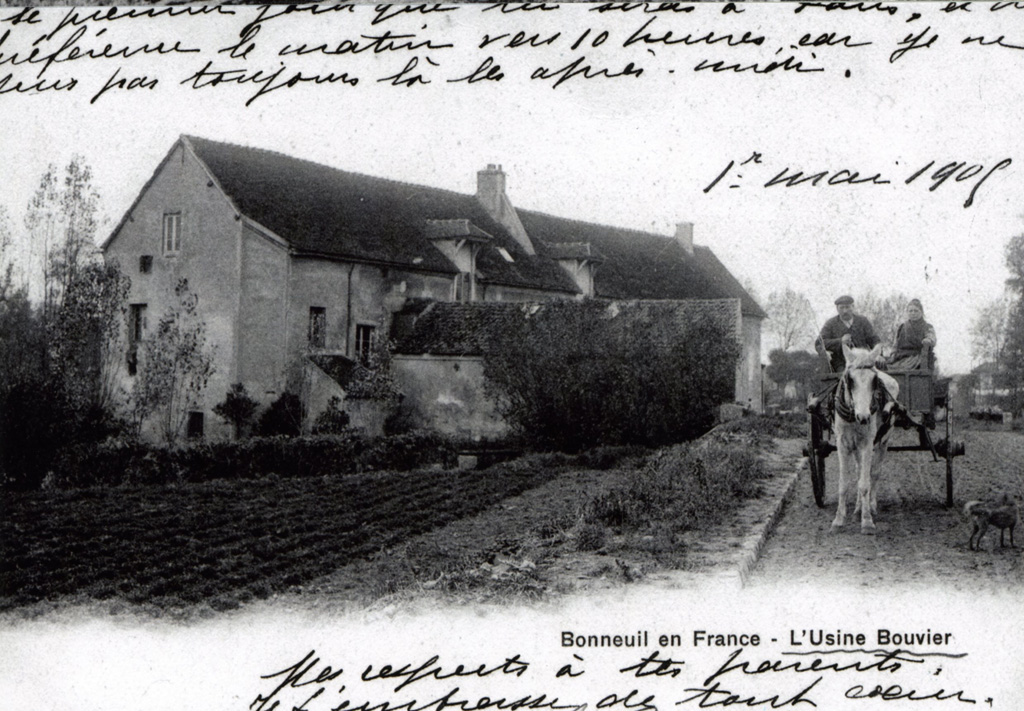 le premier jour que tu seras à
préférence le matin vers 10 heures, car je ne
suis pas toujours là les après-midi.
1r mai 1905
Bonneuil en France - L'Usine Bouvier
Mes respects à tes parents.
Je t'embrasse de tout cœur.